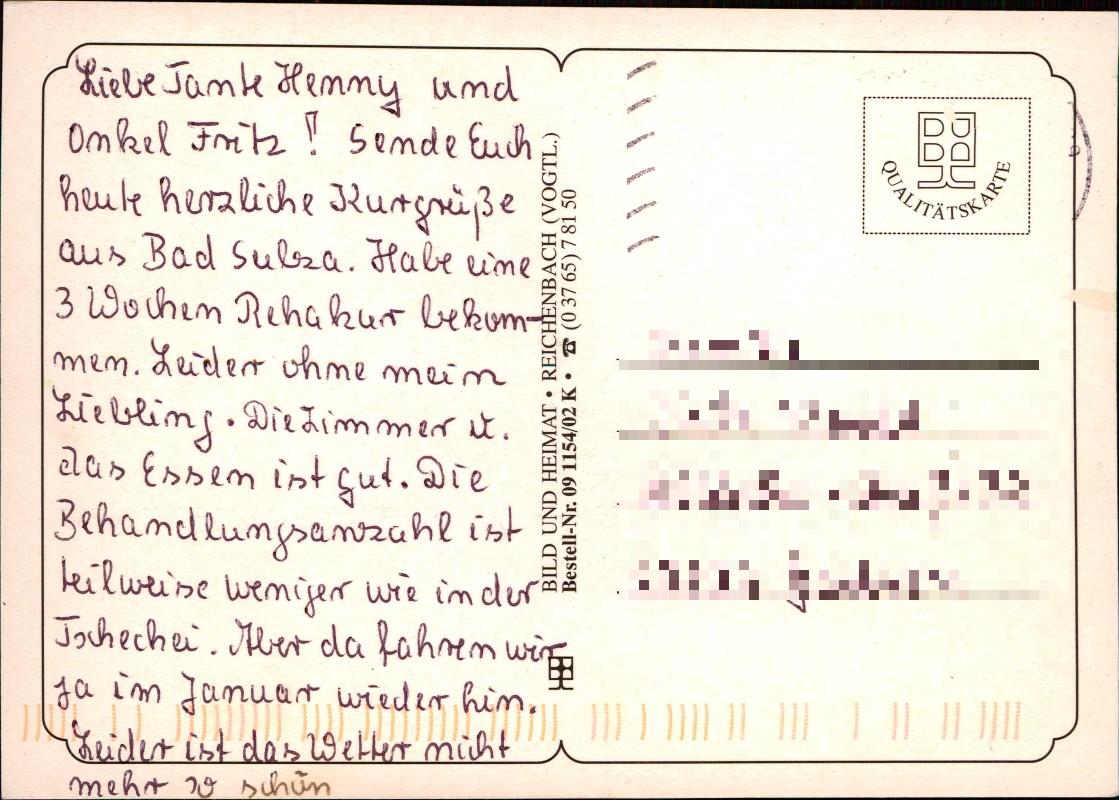 Liebe Tante Henny und
Onkel Fritz! Sende Euch
heute herzliche Kurgrüße
aus Bad Sulza. Habe eine
3 Wochen Rehakur bekom-
men. Leider ohne mein
Liebling. Die Zimmer u.
das Essen ist gut. Die
Behandlungsanzahl ist
teilweise weniger wie in der
Tschechei. Aber da fahren wir
ja im Januar wieder hin.
Leider ist das Wetter nicht
mehr so schön
BILD UND HEIMAT • REICHENBACH (VOGTL.)
Bestell-Nr. 09 1154/02 K • ☎ (0 37 65) 7 81 50
QUALITÄTSKARTE